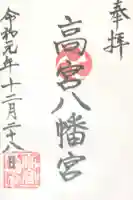 奉拝
高宮八幡宮
令和元年十二月二十八日